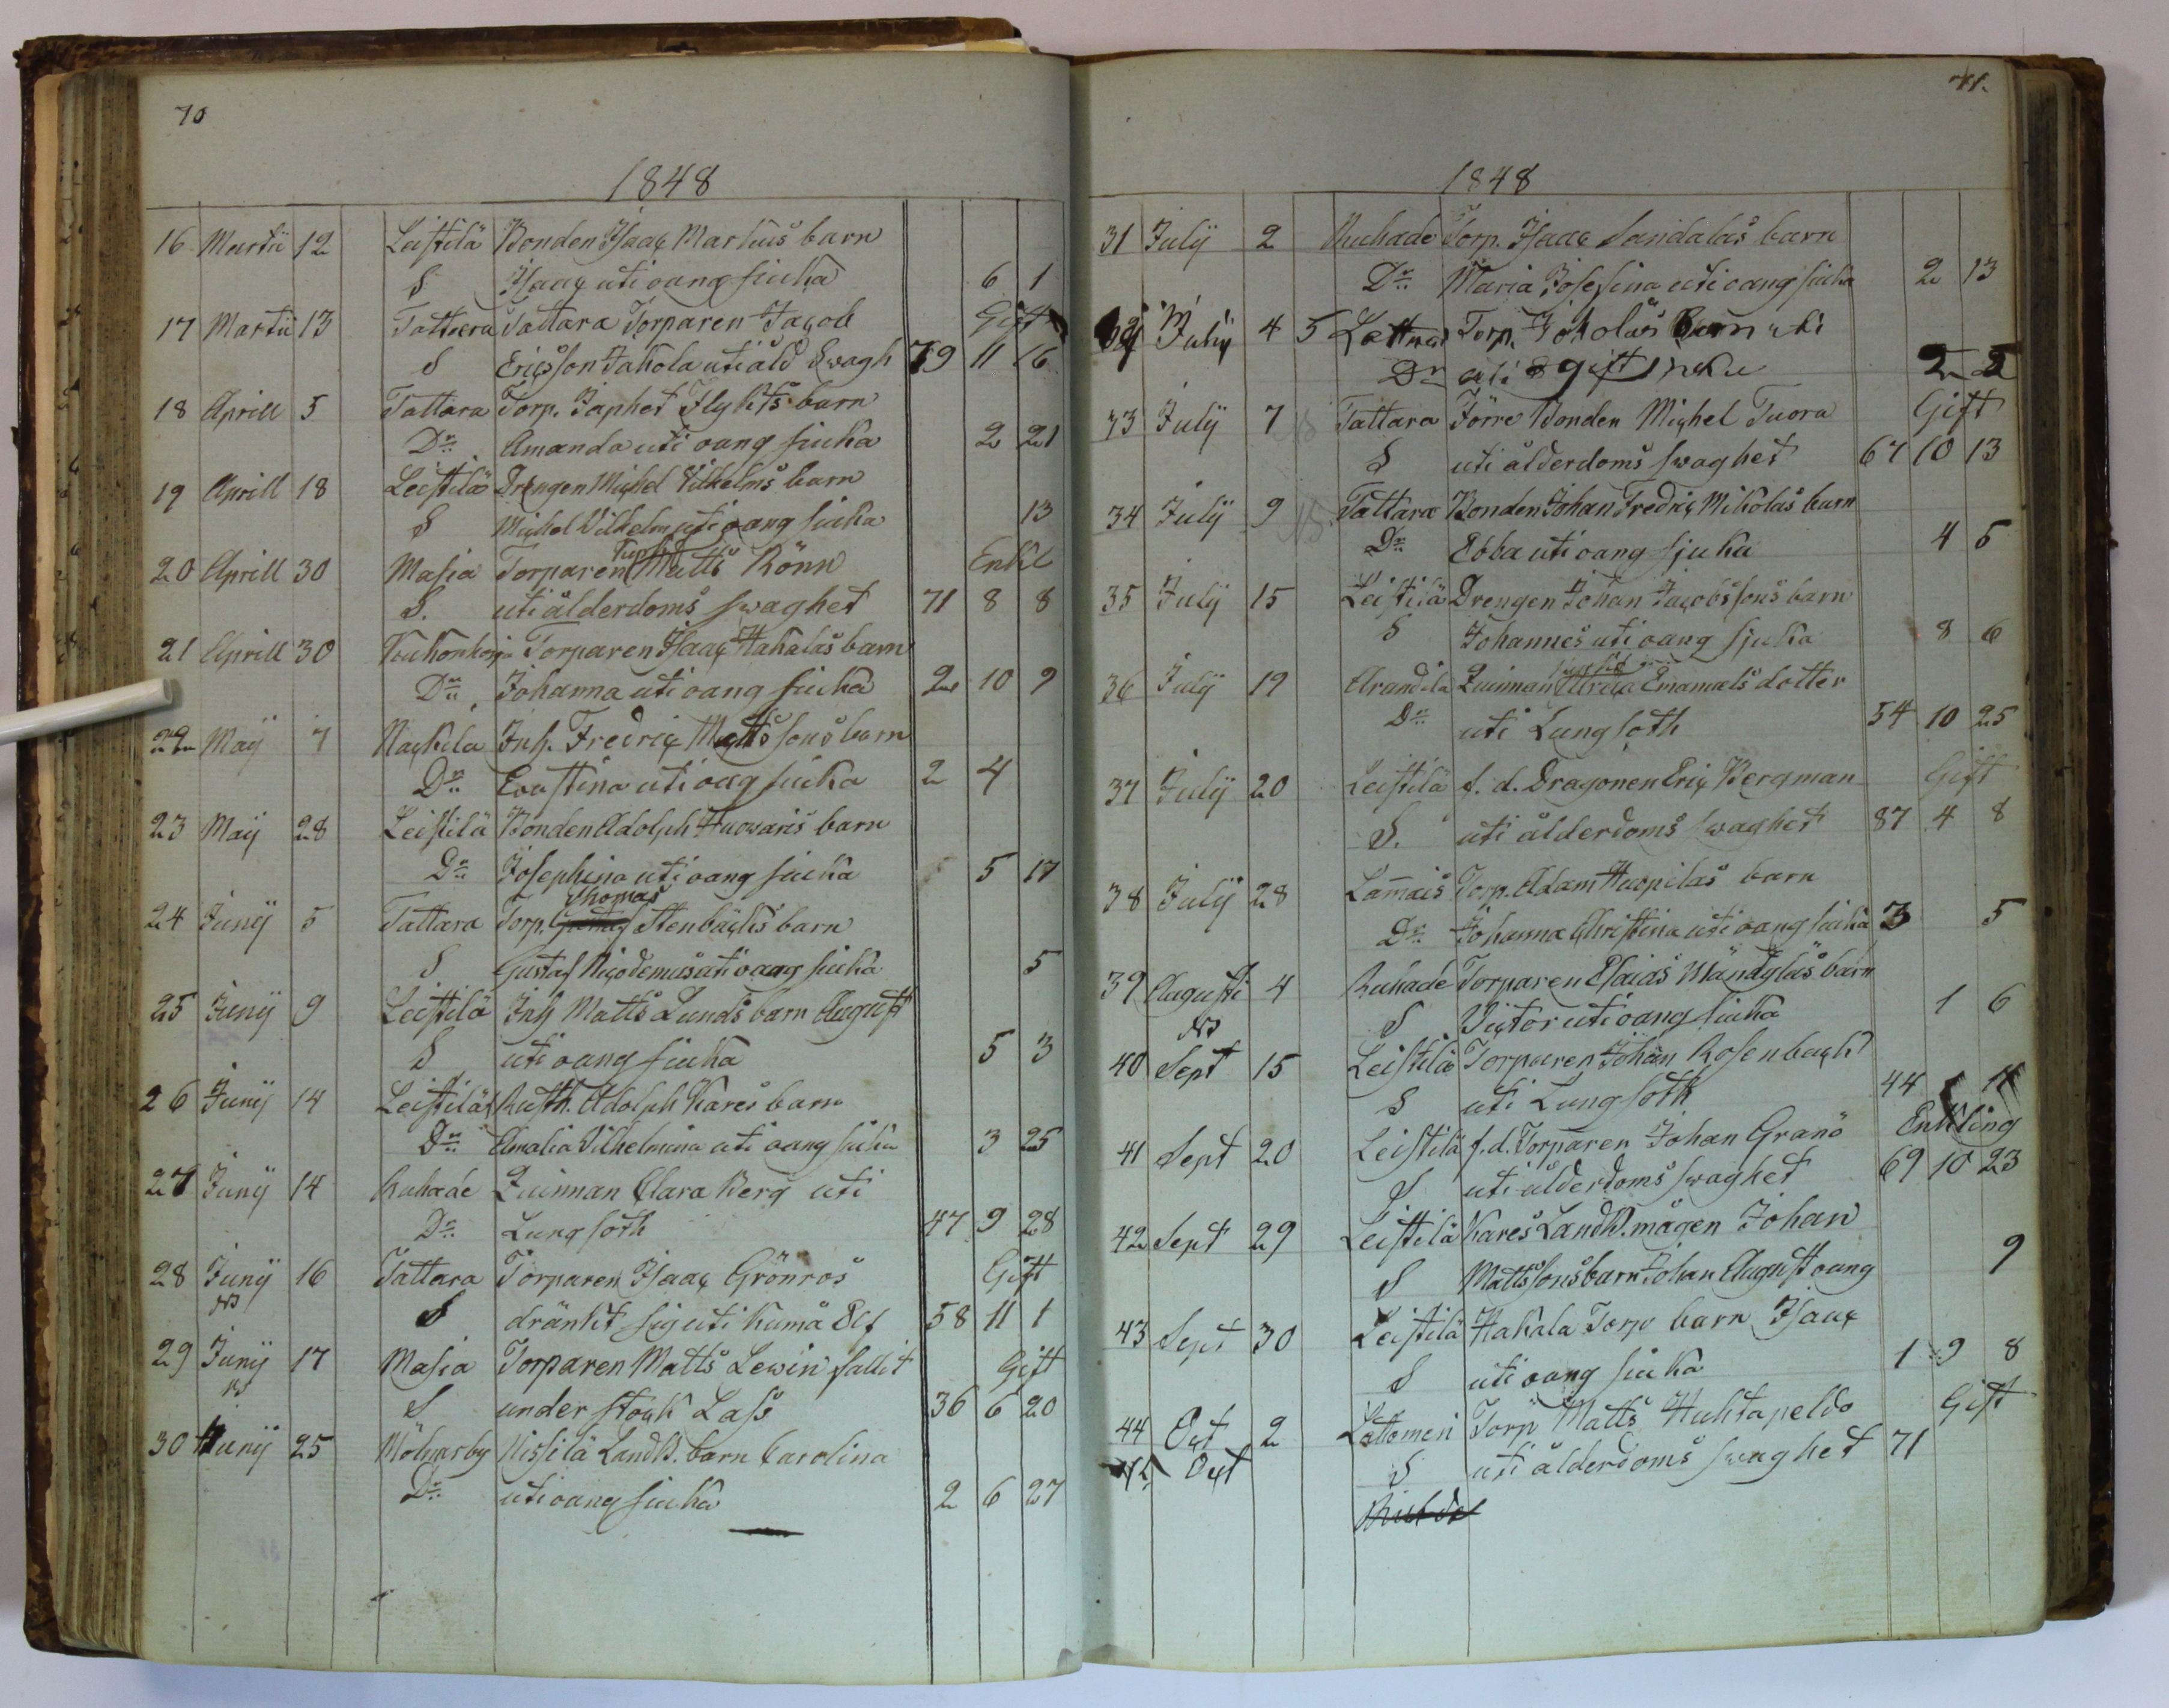 70
1848
16 Martii 12 Leistilä Bonden Isaac Martins barn
S Isaac uti oang siuka 6 1
17 Martii 13 Tattara Tattara Torparen Jacob Gift
S Ericsson Jakola uti åld Swagh 79 11 16
18 Aprill 5 Tattara Torp. Japhet Flykts barn
Dr Amanda uti oang siuka 2 21
19 Aprill 18 Leistilä Drengen Michel Vilhelms barn
S Michel Vilhelm uti oang siuka 13
20 Aprill 30 Masia Torparen Matts Rönn Enkl
S. uti ålderdoms swaghet 71 8 8
21 Aprill 30 Torparen Isaac Hakalas barn
Dr Johanna uti oang siuka 2 10 9
22 Maij 7 Nackila Inh. Fredric Mattssons barn
Dr Eva Stina uti oag siuka 2 4
23 Maij 28 Leistilä Bonden Adolph Huowaris barn
Dr Josephina uti oang siuka 5 17
Thomas
24 Junij 5 Tattara Torp. Stenbäcks barn
S Gustaf Nicodemus uti oang siuka 5
25 Junij 9 Leistilä Inh Matts Lunds barn August
S uti oang siuka 5 3
26 Junij 14 Leistilä Rusth. Adolph Kares barn
Dr Amalia Vilhelmina uti oang siuka 3 25
27 Junij 14 Ruhade Quinnan Clara Berg uti
Dr Lungsoth 47 9 28
28 Junij 16 Tattara Torparen Isaac Grönros Gift
NB S dränkt sig uti Kumå Elf 58 11 1
29 Junij 17 Masia Torparen Matts Lewin fallit Gift
NB S under stock Lass 36 6 20
30 Junij 25 Mölnarby Hissilä Landb. barn Carolina
Dr uti oang siuka 2 6 27
71.
1848
31 Julij 2 Ruhade Torp. Isaac Sandalas barn
Dr Maria Josefina uti oang siuka 2 13
32 Julij 4 5 Torp. Jokolas barn
Dr 2 2
33 Julij 7 Tattara Förre Bonden Michel Tuora Gift
S uti ålderdoms swaghet 67 10 13
34 Julij 9 NB Tattara Bonden Johan Fredric Mikolas barn
Dr Ebba uti oang sjuka 4 5
35 Julij 15 Leistilä Drengen Johan Jacobssons barn
S Johannes uti oang sjuka 8 6
36 Julij 19 Arandila Quinnan Ulrica Emanuels dotter
Dr uti Lungsoth 54 10 25
37 Julij 20 Leistilä f. d. Dragonen Eric Bergman Gift
S. uti ålderdoms swaghet 87 4 8
38 Julij 28 Lamais Torp. Adam Huopilas barn
Dr Johanna Christina uti oang siuka 3 5
39 Augusti 4 Ruhade Torparen Esaias Mändyläs barn
S Victor uti oang siuka 1 6
NB
40 Sept 15 Leistilä Torparen Johan Rosenback
S uti Lungsoth 44
41 Sept 20 Leistilä f. d. Torparen Johan Granö Enkling
S uti ålderdoms swaghet 69 10 23
42 Sept 29 Leistilä Kares Landb. mågen Johan
S Mattssons barn Johan August oang 9
43 Sept 30 Leistilä Hakala Torp barn Isaac
S uti oang siuka 1 9 8
44 Oct 2 Lattomeri Torp Matts Huhtapeldo Gift
45 Oct S uti ålderdoms swaghet 71